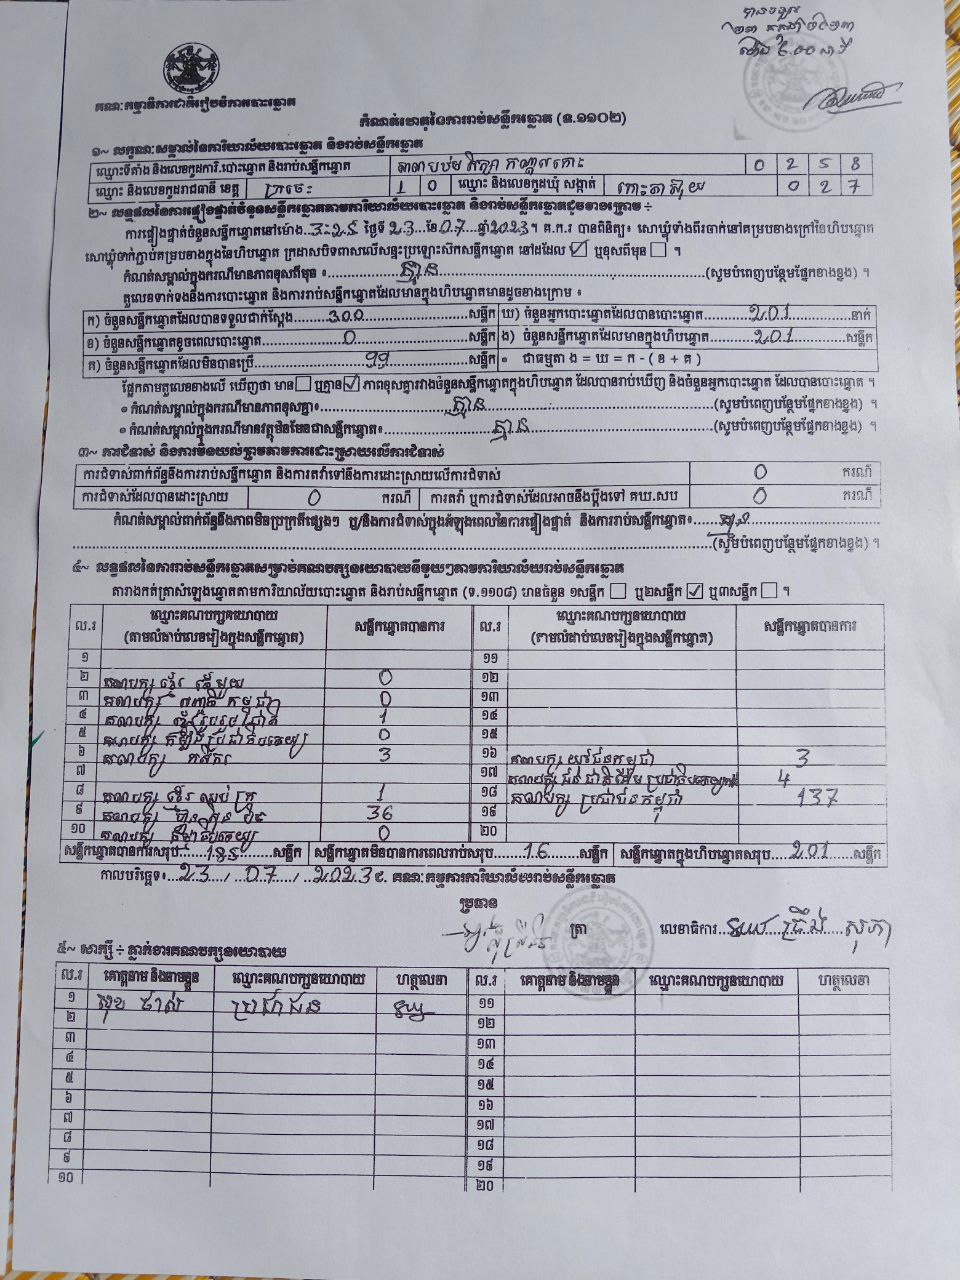 បានចម្លង
គណៈកម្មាធិការជាតិរៀបចំការបោះឆ្នោត
កំណត់ហេតុនៃការរាប់សន្លឹកឆ្នោត (ទ.១១០២)
១~ លក្ខណៈសម្គាល់នៃការិយាល័យបោះឆ្នោត និងរាប់សន្លឹកឆ្នោត
ឈ្មោះទីតាំង និងលេខកូដការិ.បោះឆ្នោត និងរាប់សន្លឹកឆ្នោត 0 2 5 8
ឈ្មោះ និងលេខកូដរាជធានី ខេត្ត ក្រចេះ 1 0 ឈ្មោះ និងលេខកូដឃុំ សង្កាត់ 0 2 7
២~ លទ្ធផលនៃការផ្ទៀងផ្ទាត់ចំនួនសន្លឹកឆ្នោតតាមការិយាល័យបោះឆ្នោត និងរាប់សន្លឹកឆ្នោតដូចខាងក្រោម ÷
ការផ្ទៀងផ្ទាត់ចំនួនសន្លឹកឆ្នោតនៅម៉ោង ថ្ងៃទី 23 ខែ 07 ឆ្នាំ 2023។ គ.ក.រ បានពិនិត្យ៖ សោឃ្លុំទាំងពីរចាក់នៅគម្របខាងក្រៅនៃហិបឆ្នោត
សោឃ្លុំចាក់ភ្ជាប់គម្របខាងក្នុងនៃហិបឆ្នោត ក្រដាសបិទពាសលើសន្ទះប្រឡោះស៊កសន្លឹកឆ្នោត នៅដដែល ☑ ឬខុសពីមុន ☐ ។
កំណត់សម្គាល់ក្នុងករណីមានភាពខុសពីមុន ៖ គ្មាន (សូមបំពេញបន្ថែមផ្នែកខាងខ្នង) ។
តួលេខទាក់ទងនឹងការបោះឆ្នោត និងការរាប់សន្លឹកឆ្នោតដែលមានក្នុងហិបឆ្នោតមានដូចខាងក្រោម ៖
ក) ចំនួនសន្លឹកឆ្នោតដែលបានទទួលជាក់ស្តែង 300 សន្លឹក ឃ) ចំនួនអ្នកបោះឆ្នោតដែលបានបោះឆ្នោត 201 នាក់
ខ) ចំនួនសន្លឹកឆ្នោតខូចពេលបោះឆ្នោត 0 សន្លឹក ង) ចំនួនសន្លឹកឆ្នោតដែលមានក្នុងហិបឆ្នោត 201 សន្លឹក
គ) ចំនួនសន្លឹកឆ្នោតដែលមិនបានប្រើ 99 សន្លឹក ∘ ជាធម្មតា ង = ឃ = ក - ( ខ + គ )
ផ្អែកតាមតួលេខខាងលើ ឃើញថា មាន ☐ ឬគ្មាន ☑ ភាពខុសគ្នារវាងចំនួនសន្លឹកឆ្នោតក្នុងហិបឆ្នោត ដែលបានរាប់ឃើញ និងចំនួនអ្នកបោះឆ្នោត ដែលបានបោះឆ្នោត ។
∘ កំណត់សម្គាល់ក្នុងករណីមានភាពខុសគ្នា៖ គ្មាន (សូមបំពេញបន្ថែមផ្នែកខាងខ្នង) ។
∘ កំណត់សម្គាល់ក្នុងករណីមានវត្ថុមិនមែនជាសន្លឹកឆ្នោត៖ គ្មាន (សូមបំពេញបន្ថែមផ្នែកខាងខ្នង) ។
៣~ ការជំទាស់ និងការមិនយល់ព្រមតាមការដោះស្រាយលើការជំទាស់
ការជំទាស់ពាក់ព័ន្ធនឹងការរាប់សន្លឹកឆ្នោត និងការតវ៉ាទៅនឹងការដោះស្រាយលើការជំទាស់ 0 ករណី
ការជំទាស់ដែលបានដោះស្រាយ 0 ករណី ការតវ៉ា ឬការជំទាស់ដែលអាចនឹងប្តឹងទៅ គឃ.សប 0 ករណី
កំណត់សម្គាល់ពាក់ព័ន្ធនឹងភាពមិនប្រក្រតីផ្សេងៗ ឬ/និងការជំទាស់ក្នុងអំឡុងពេលនៃការផ្ទៀងផ្ទាត់ និងការរាប់សន្លឹកឆ្នោត៖ គ្មាន
(សូមបំពេញបន្ថែមផ្នែកខាងខ្នង) ។
៤~ លទ្ធផលនៃការរាប់សន្លឹកឆ្នោតសម្រាប់គណបក្សនយោបាយនីមួយៗតាមការិយាល័យរាប់សន្លឹកឆ្នោត
តារាងកត់ត្រាសំឡេងឆ្នោតតាមការិយាល័យបោះឆ្នោត និងរាប់សន្លឹកឆ្នោត (ទ.១១០៨) មានចំនួន ១សន្លឹក ☐ ឬ២សន្លឹក ☑ ឬ៣សន្លឹក ☐ ។
ល.រ ឈ្មោះគណបក្សនយោបាយ (តាមលំដាប់លេខរៀងក្នុងសន្លឹកឆ្នោត) សន្លឹកឆ្នោតបានការ ល.រ ឈ្មោះគណបក្សនយោបាយ (តាមលំដាប់លេខរៀងក្នុងសន្លឹកឆ្នោត) សន្លឹកឆ្នោតបានការ
១ ១១
២ គណបក្ស ខ្មែរ តែមួយ 0 ១២
៣ គណបក្ស 0 ១៣
៤ គណបក្ស ខ្មែររួបរួមជាតិ 1 ១៤
៥ គណបក្ស 0 ១៥
៦ គណបក្ស កសិករ 3 ១៦ គណបក្ស យុវជនកម្ពុជា 3
៧ ១៧ គណបក្ស ជនជាតិដើមប្រជាធិបតេយ្យកម្ពុជា 4
៨ គណបក្ស ខ្មែរ ឈប់ ក្រ 1 ១៨ គណបក្ស ប្រជាជនកម្ពុជា 137
៩ គណបក្ស ហ្វ៊ុនស៊ិនប៉ិច 36 ១៩
១០ គណបក្ស ធម្មាធិបតេយ្យ 0 ២០
សន្លឹកឆ្នោតបានការសរុប 185 សន្លឹក សន្លឹកឆ្នោតមិនបានការពេលរាប់សរុប 16 សន្លឹក សន្លឹកឆ្នោតក្នុងហិបឆ្នោតសរុប 201 សន្លឹក
កាលបរិច្ឆេទ៖ 23 / 07 / 2023 ៩. គណៈកម្មការការិយាល័យរាប់សន្លឹកឆ្នោត
ប្រធាន
ត្រា លេខាធិការ
៥~ សាក្សី ÷ ភ្នាក់ងារគណបក្សនយោបាយ
ល.រ គោត្តនាម និងនាមខ្លួន ឈ្មោះគណបក្សនយោបាយ ហត្ថលេខា ល.រ គោត្តនាម និងនាមខ្លួន ឈ្មោះគណបក្សនយោបាយ ហត្ថលេខា
១ ប្រជាជន ១១
២ ១២
៣ ១៣
៤ ១៤
៥ ១៥
៦ ១៦
៧ ១៧
៨ ១៨
៩ ១៩
១០ ២០